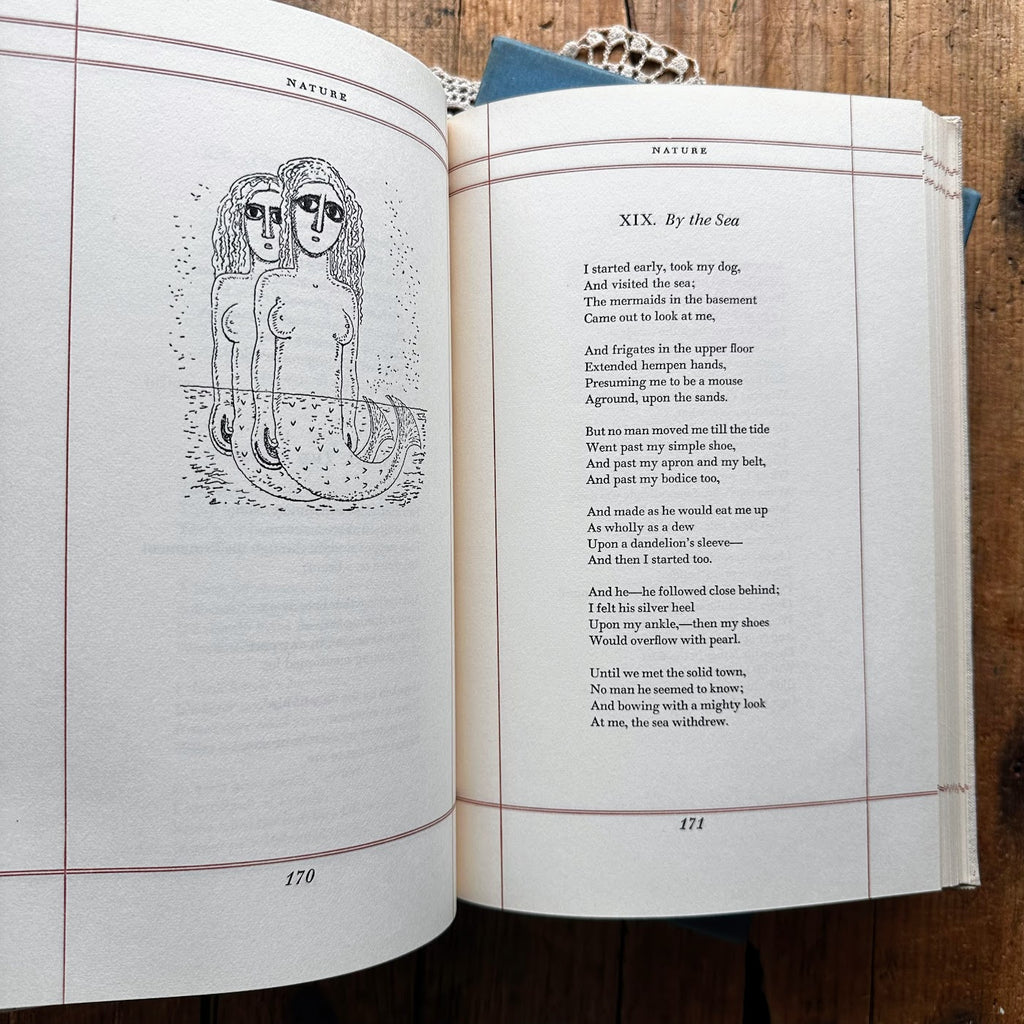 NATURE
170
NATURE
XIX. By the Sea
I started early, took my dog,
And visited the sea;
The mermaids in the basement
Came out to look at me,
And frigates in the upper floor
Extended hempen hands,
Presuming me to be a mouse
Aground, upon the sands.
But no man moved me till the tide
Went past my simple shoe,
And past my apron and my belt,
And past my bodice too,
And made as he would eat me up
As wholly as a dew
Upon a dandelion's sleeve—
And then I started too.
And he—he followed close behind;
I felt his silver heel
Upon my ankle,—then my shoes
Would overflow with pearl.
Until we met the solid town,
No man he seemed to know;
And bowing with a mighty look
At me, the sea withdrew.
171